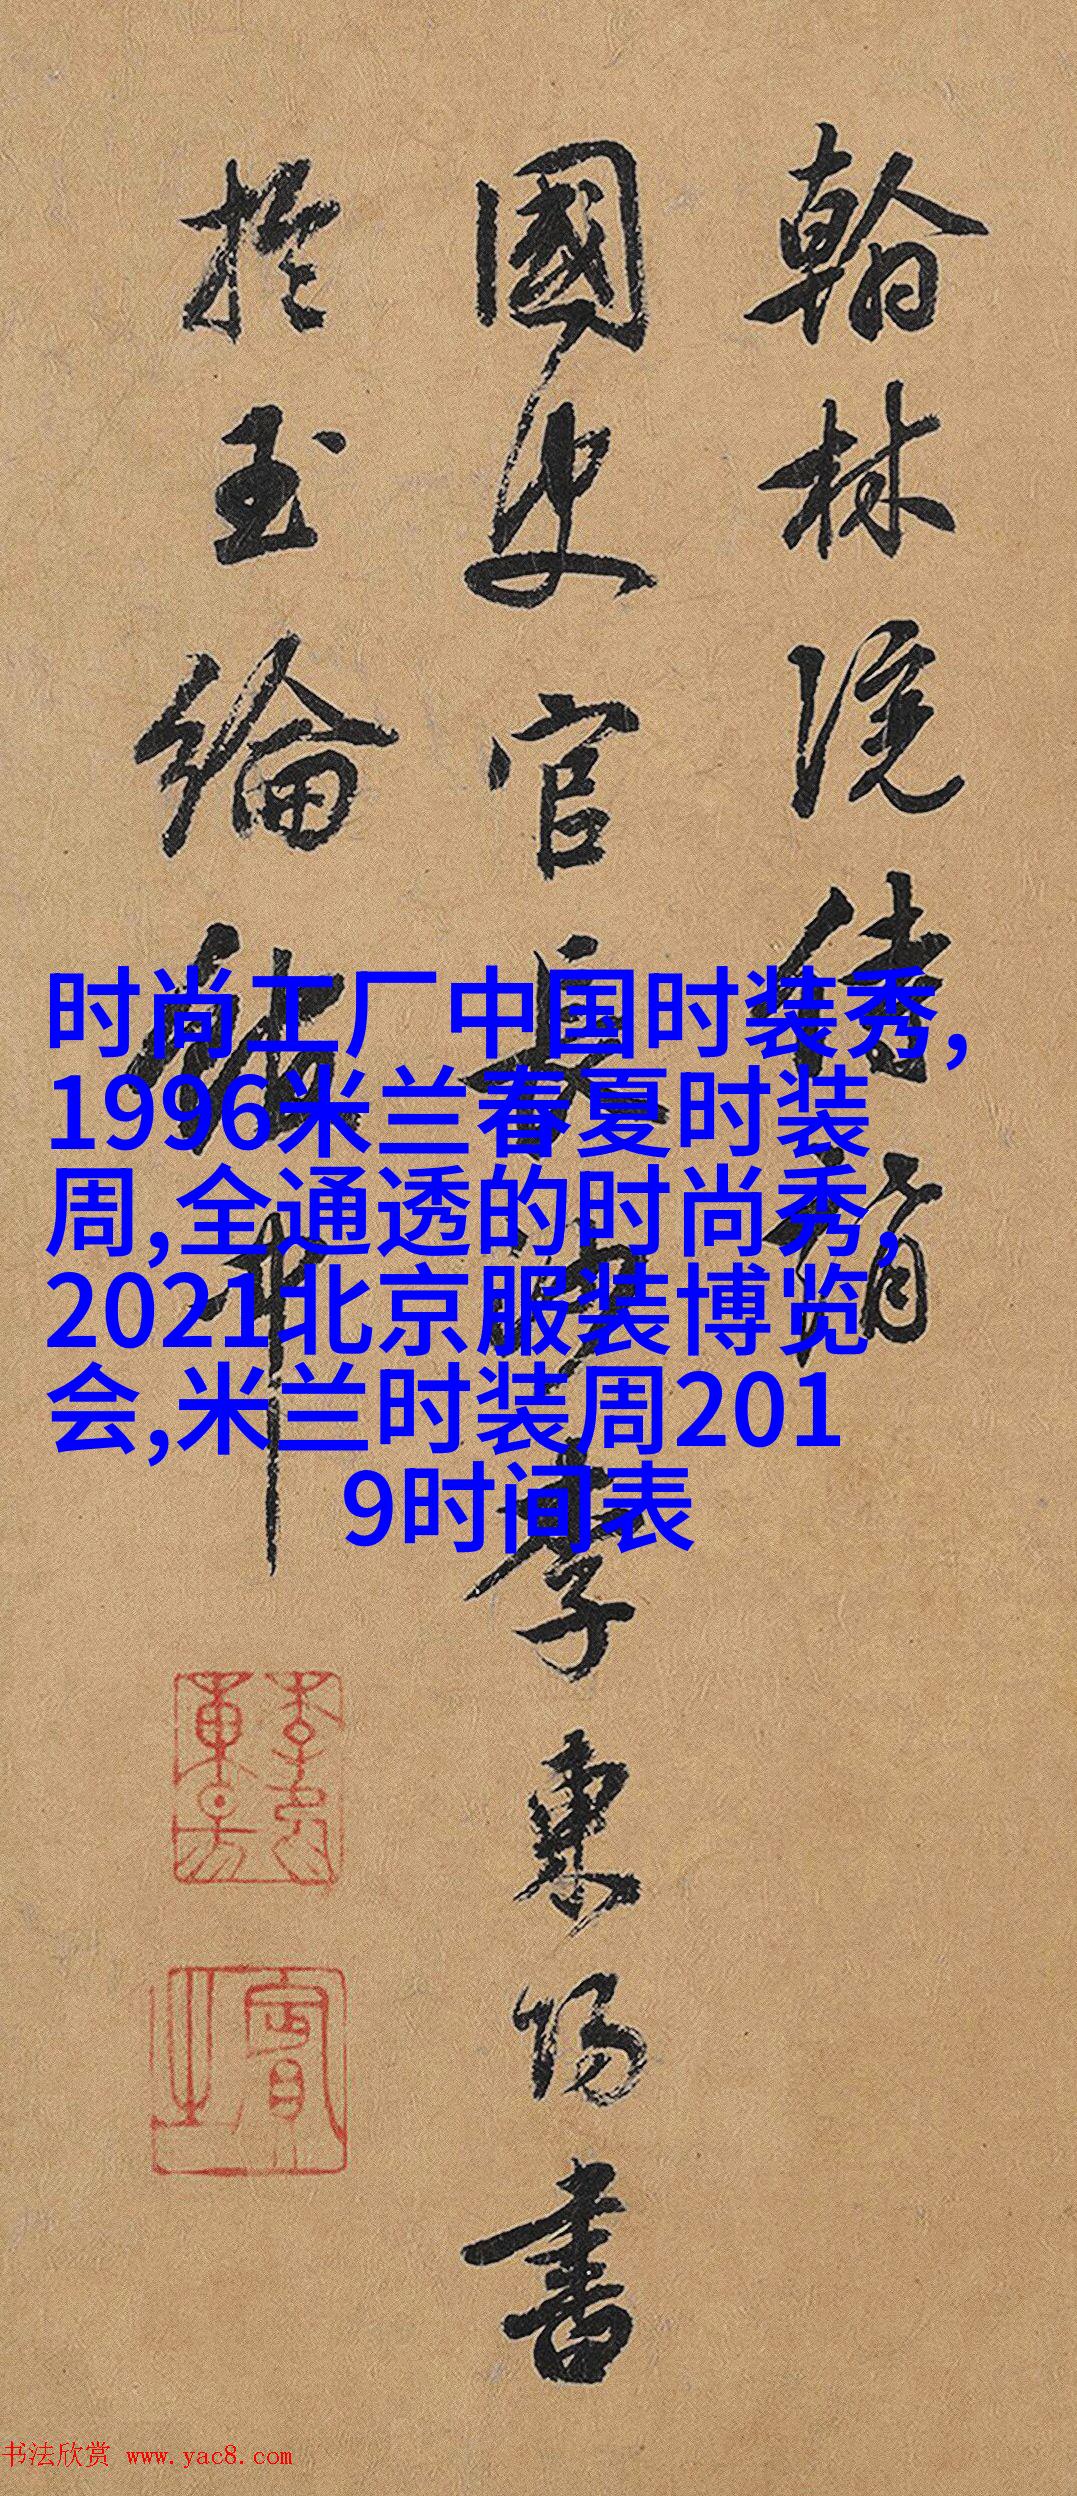 翰林院
國史官長沙李東陽書
於玉綸
时尚工厂中国时装秀,
1996米兰春夏时装
周,全通透的时尚秀,
2021北京服装博览
会,米兰时装周201
9时间表
书法欣赏 www.yac8.com